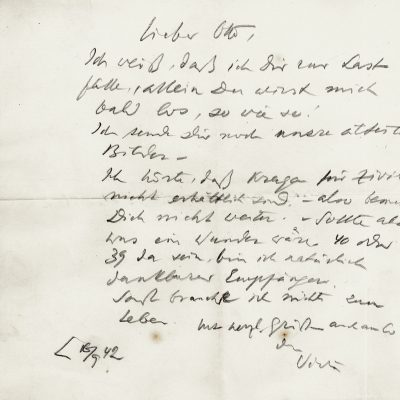 Lieber Otto,
Ich weiß, daß ich Dir zur Last
falle, allein Du wirst mich
bald los, so wie so!
Ich sende Dir noch unsere
Bilder –
Ich hörte, daß Kragen für Zivil
nicht erhältlich sind – also
Dich nicht weiter. – Sollte
was ein Wunder wäre 40 oder
39 da sein, bin ich natürlich
dankbarer Empfänger.
Sonst brauche ich nichts zum
Leben. herzl. Grüßen
Dein
9 42